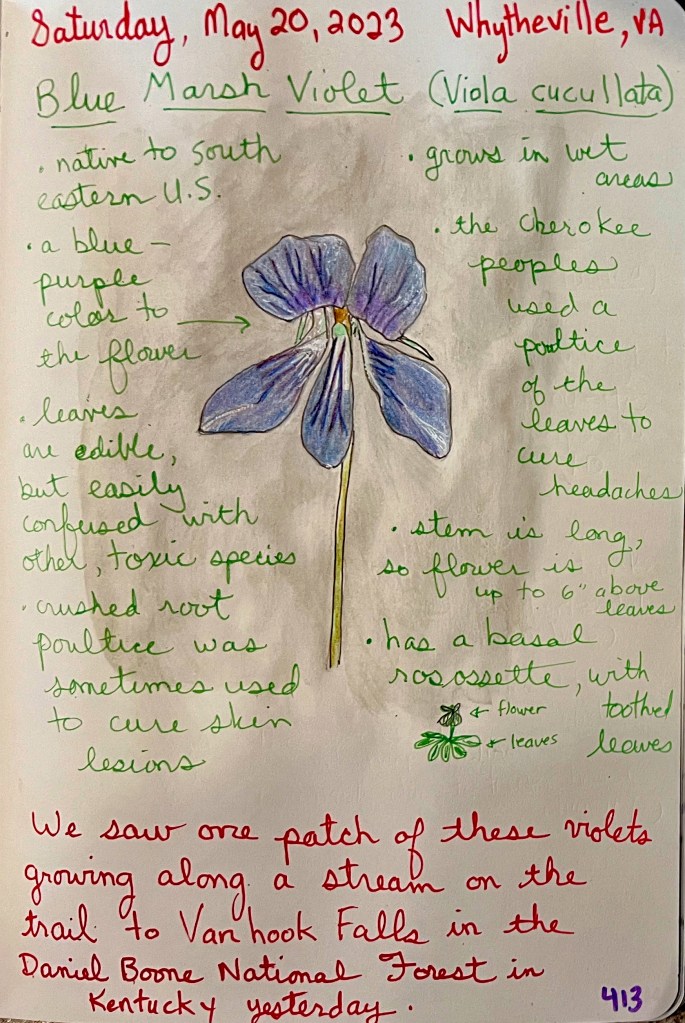 Saturday, May 20, 2023 Whytheville, VA
Blue Marsh Violet (Viola cucullata)
· native to south
eastern U.S.
· a blue-
purple
color to
the flower
· leaves
are edible,
but easily
confused with
other, toxic species
· crushed root
poultice was
sometimes used
to cure skin
lesions
· grows in wet
areas
· the Cherokee
peoples
used a
poultice
of the
leaves to
cure
headaches
· stem is long,
so flower is
up to 6" above
leaves
· has a basal
rosossette, with
toothed
leaves
flower
leaves
We saw one patch of these violets
growing along a stream on the
trail to Van hook Falls in the
Daniel Boone National Forest in
Kentucky yesterday.
413